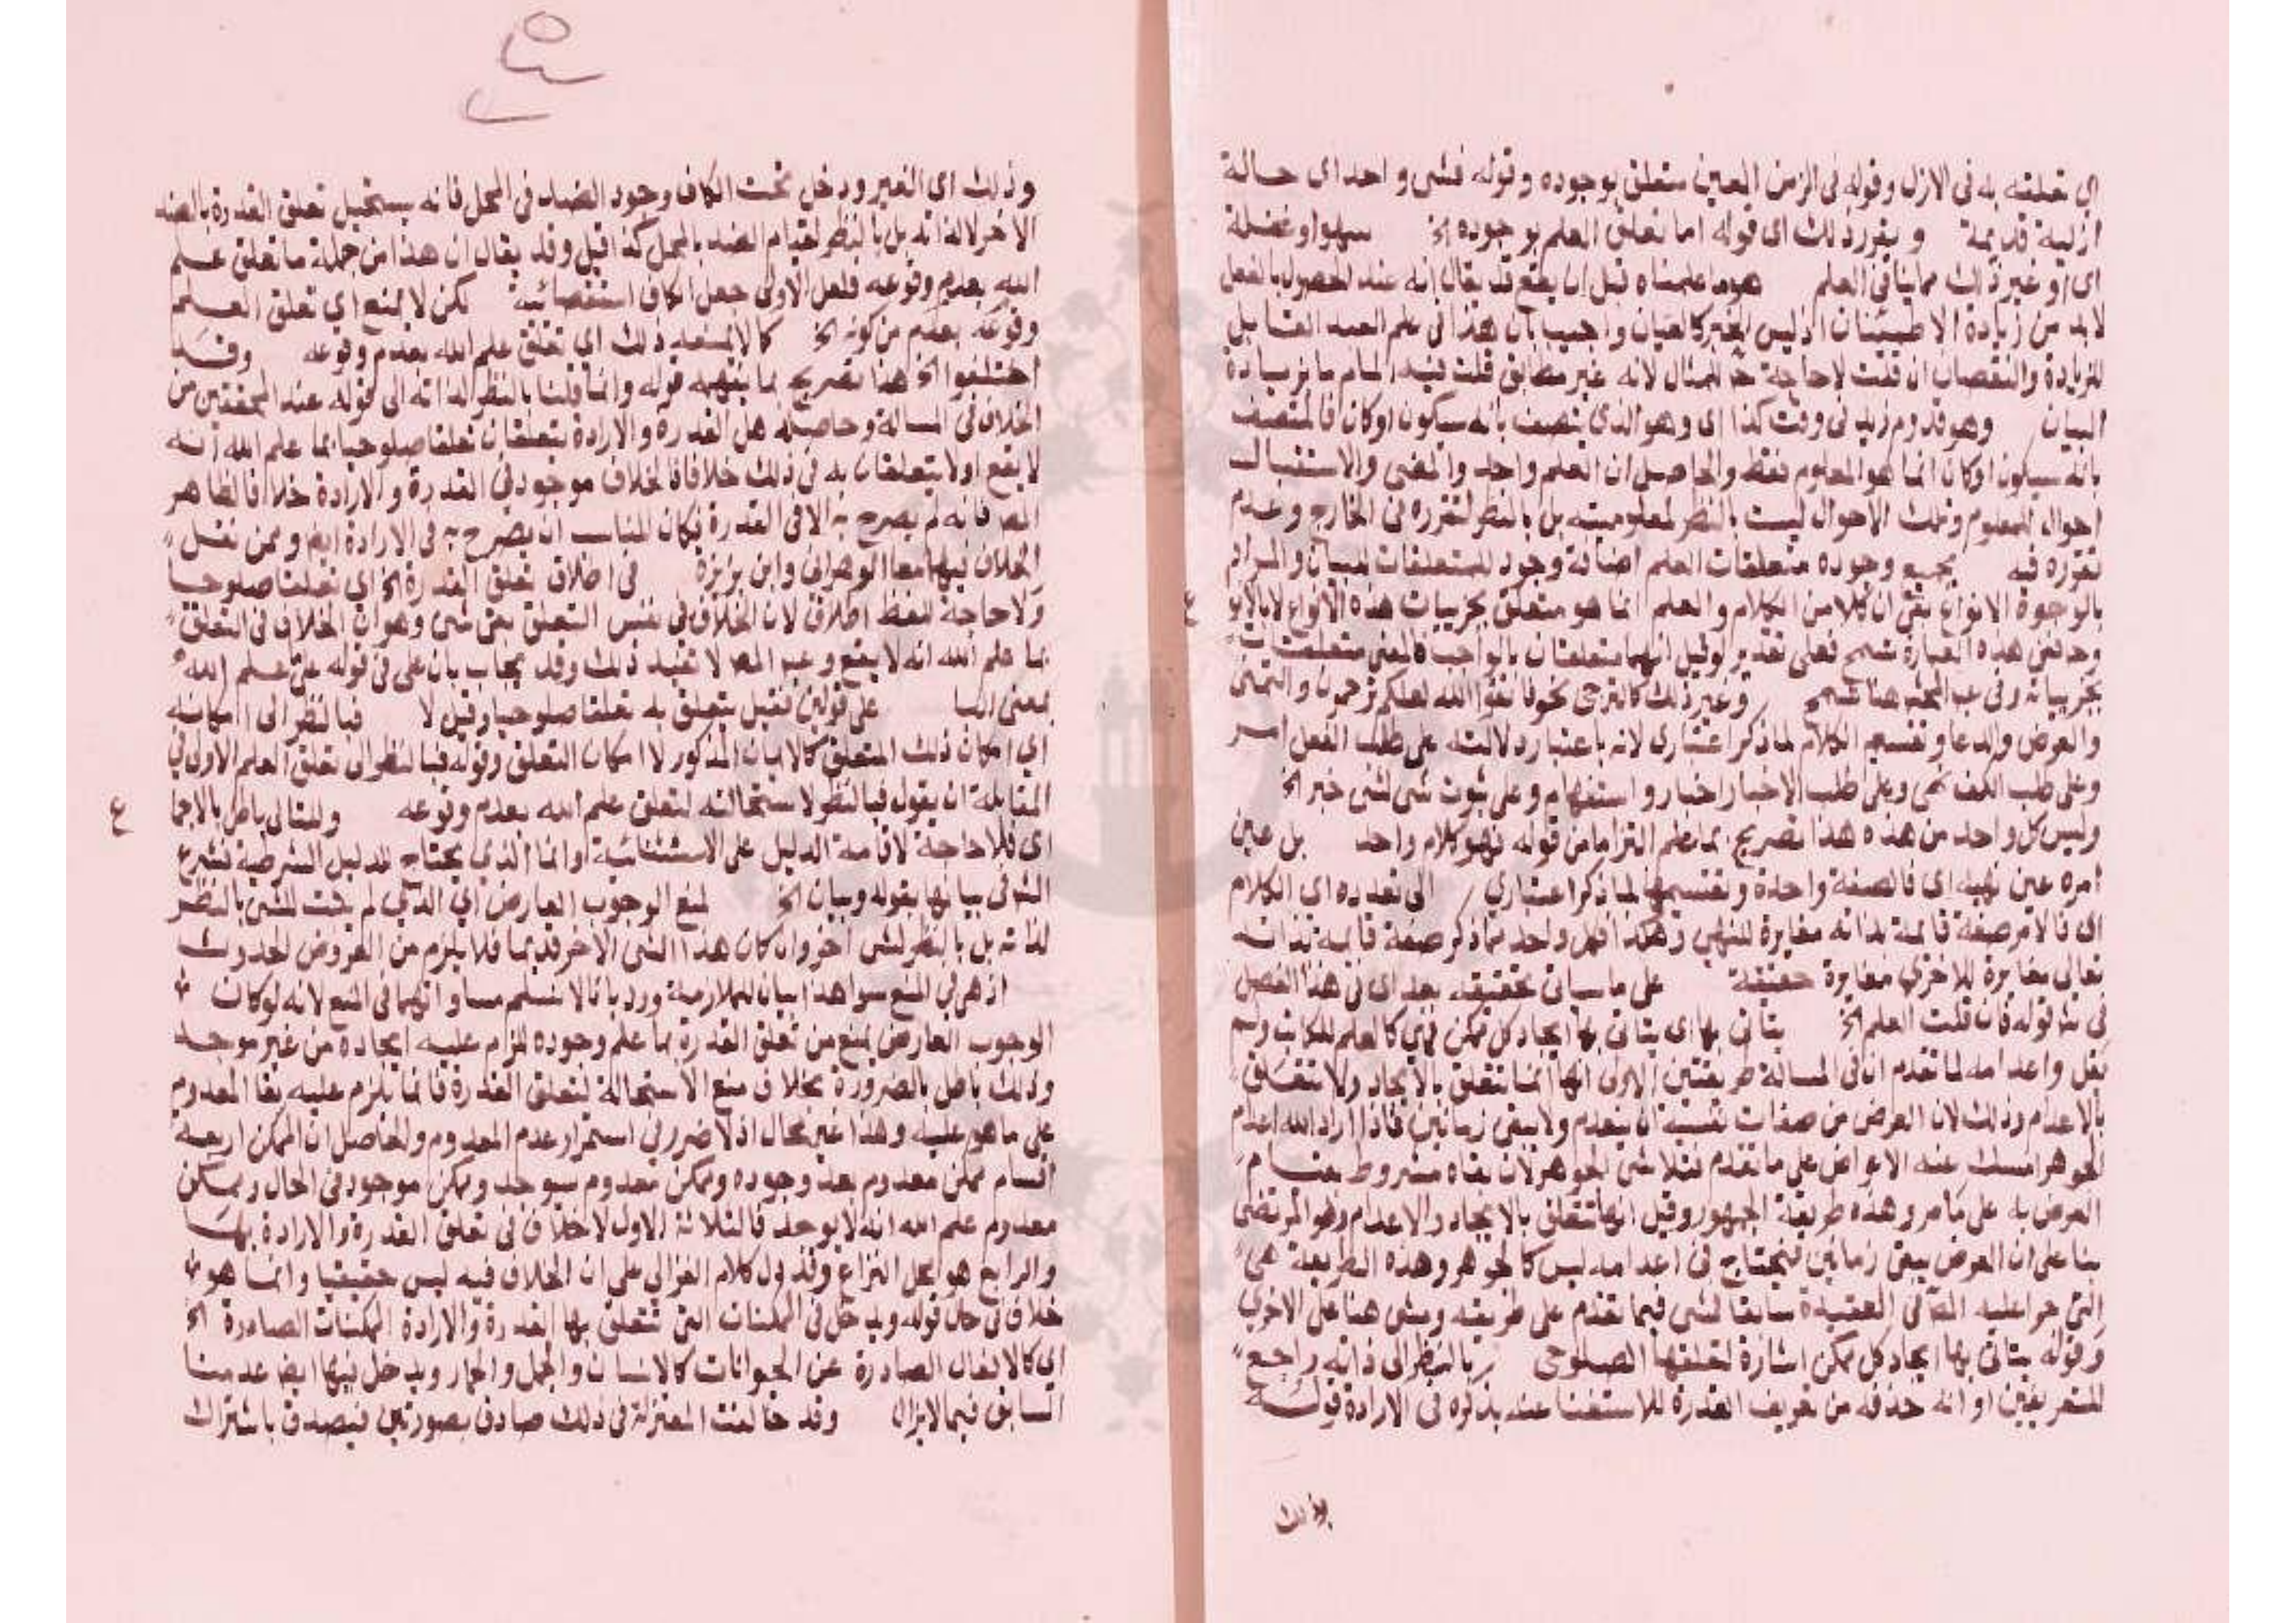 اي تعلقه به في الازل وقوله في الزمن المعين متعلق بوجوده وقوله فشى واحد اى حالة
ازلية قديمة ويقرر ذلك اى قوله اما تعلق العلم بوجوده الخ سهوا وغفلة
اى او غير ذلك مما ينافى العلم هو ما علمناه قبل ان يقع قد يقال انه عند الحصول بالفعل
لابد من زيادة الاطمئنان اذ ليس الخبر كالعيان واجيب بان هذا في علم العبد القابل
للزيادة والنقصان ان قلت لا حاجة للمثال لانه غير مطابق قلت فيه المام ما بزيادة
البيان وهو قدوم زيد في وقت كذا اى وهو الذى يتصف بانه سيكون او كان فالمتصف
بانه سيكون او كان انما هو المعلوم فقط والحاصل ان العلم واحد والمضى والاستقبال
احوال للمعلوم وتلك الاحوال ليست بالنظر لمعلوميته بل بالنظر لتقرره في الخارج وعدم
تقرره فيه بجميع وجوده متعلقات العلم اضافة وجود للمتعلقات للبيان والمراد
بالوجوه الانواع بقى ان كلا من الكلام والعلم انما هو متعلق بجزييات هذه الانواع لا بالانو
وحـ ففى هذه العبارة تسمح فعلى تقدير لو قيل انهما متعلقان بالواجب فالمعنى متعلقان
بجزيياته وفى هنا تسمح وغير ذلك كالترجى نحو فاتقوا الله لعلكم ترحمون والتمنى
والعرض والدعا وتقسيم الكلام لما ذكر اعتبارى لانه باعتبار دلالته على طلب الفعل امر
وعلى طلب الكف نهى وعلى طلب الاخبار اخبار واستفهام وعلى ثبوت شى لشى خبر الخ
وليس كل واحد من هذه هذا تصريح بما علم التزاما من قوله فهو كلام واحد بل عين
امره عين نهيه اى فالصفة واحدة وتقسيمها لما ذكر اعتبارى الى تعدده اى الكلام
اى فالامر صفة قائمة بذاته مغايرة للنهى وهكذا فكل واحد مما ذكر صفة قائمة بذاته
تعالى مغايرة للاخرى مغايرة حقيقة على ما سياتى تحقيقه بعد اى في هذا الفصل
في قوله فان قلت العلم الخ يتاتى بها اى يتاتى بها ايجاد كل ممكن فهى كالعلم للكاتب ولم
يقل واعدامه لما تقدم ان في المسالة طريقتين الاولى انها انما تتعلق بالايجاد ولا تتعلق
بالاعدام وذلك لان العرض من صفات نفسه ان ينعدم ولا يبقى زمانين فاذا اراد الله اعدام
الجوهر امسك عنه الاعراض على ما تقدم فتلاشى الجوهر لان بقاه مشروط بقيام
العرض به على ما مر وهذه طريقة الجمهور وقيل انها تتعلق بالايجاد والاعدام وهو المرتضى
بنا على ان العرض يبقى زمانين فيحتاج في اعدامه ليس كالجوهر وهذه الطريقة هى
التى جرا عليه المص في العقيدة سابقا فمشى فيما تقدم على طريقه ومشى هنا على الاخرى
وقوله يتاتى بها ايجاد كل ممكن اشارة لتعلقها الصلوحى بالنظر الى ذاته راجع
للتعريفين او انه حذفه من تعريف القدرة للاستغنا عنه بذكره في الارادة قوله
وذلك
وذلك اى الغير ودخل تحت الكاف وجود الضد في المحل فانه يستحيل تعلق القدرة بالضد
الاخر لا لذاته بل بالنظر لقيام الضد بالمحل كذا قيل وقد يقال ان هذا من جملة ما تعلق علم
الله بعدم وقوعه فلعل الاولى جعل الكاف استقصائية لكن لا يمنع اي تعلق العلم
وقوعه بعدم من كونه الخ كما لا يمنعه ذلك اي تعلق علم الله بعدم وقوعه وقد
اختلفوا الخ هذا تصريح بما يفهمه قوله وانما قلنا بالنظر لذاته الى قوله عند المحققين من
الخلاف في المسالة وحاصله هل القدرة والارادة يتعلقان تعلقا صلوحيا بما علم الله انه
لا يقع او لا يتعلقان به في ذلك خلاف فالخلاف موجود في القدرة والارادة خلافا لظاهر
المص فانه لم يصرح به الا في القدرة فكان المناسب ان يصرح به في الارادة ايضا وممن نقل
الخلاف فيهما معا الوهراني وابن بزيزة في اطلاق تعلق القدرة الخ اى تعلقا صلوحيا
ولا حاجة للفظ اطلاق لان الخلاف في نفس التعلق بقى شى وهو ان الخلاف في التعلق
بما علم الله انه لا يقع وعبارة المص لا تفيد ذلك وقد يجاب بان على في قوله على علم الله
بمعنى البا على قولين فقيل يتعلق به تعلقا صلوحيا وقيل لا فبالنظر الى امكانه
اي امكان ذلك المتعلق كالايمان المذكور لا امكان التعلق وقوله فبالنظر الى تعلق العلم الاولى في
المقابلة ان يقول فبالنظر لاستحالته لتعلق علم الله بعدم وقوعه والتالى باطل بالاجما
اى فلا حاجة لاقامة الدليل على الاستثنائية وانما الذي يحتاج للدليل الشرطية فشرع
الشو في بيانها بقوله وبيان الخ لمنع الوجوب العارض اي الذي لم يثبت للشى بالنظر
لذاته بل بالنظر لشى اخر وان كان هذا الشى الاخر قديما فلا يلزم من العروض الحدوث
اذ هى في المنع سوا هذا بيان للملازمة ورد بانا لا نسلم مساواتهما في المنع لانه لو كان
الوجوب العارض يمنع من تعلق القدرة بما علم وجوده للزم عليه ايجاده من غير موجد
وذلك باطل بالضرورة بخلاف منع الاستحالة لتعلق القدرة فانما يلزم عليه بقا المعدوم
على ما هو عليه وهذا غير محال اذ لا ضرر في استمرار عدم المعدوم والحاصل ان الممكن اربعة
اقسام ممكن معدوم بعد وجوده وممكن معدوم سيوجد وممكن موجود في الحال وممكن
معدوم علم الله انه لا يوجد فالثلاثة الاول لا خلاف في تعلق القدرة والارادة بها
والرابع هو محل النزاع وقد دل كلام الغزالي على ان الخلاف فيه ليس حقيقيا وانما هو
خلاف في حال قوله ويدخل في الممكنات التى تتعلق بها القدرة والارادة الممكنات الصادرة الخ
اي كالافعال الصادرة عن الحيوانات كالانسان والجمل والحمار ويدخل فيها ايضا عدمنا
السابق فيما لا يزال وقد خالفت المعتزلة في ذلك صادق بصورتين فيصدق باشتراك